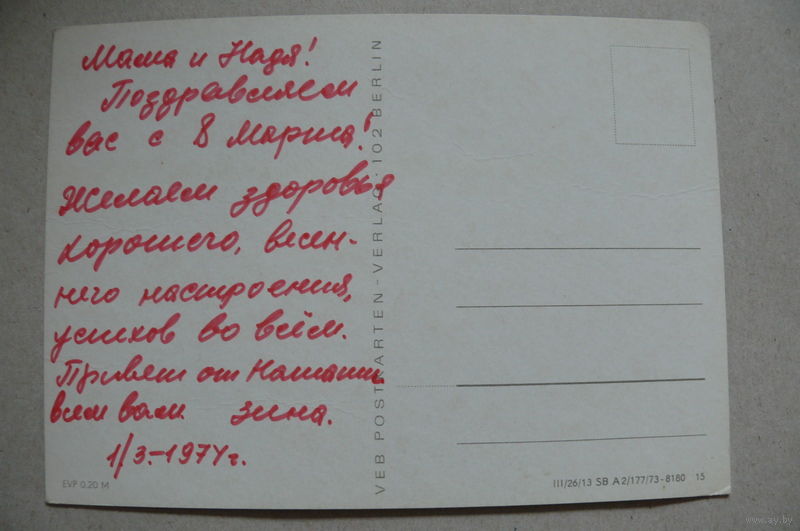 Мама и Надя!
Поздравляем
вас с 8 Марта!
Желаем здоровья
хорошего, весен-
него настроения,
успехов во всём.
Привет от Наташи
всем вам. Зина.
1/3.-1974г.
EVP 0.20 M
VEB POSTKARTEN-VERLAG · 102 BERLIN
III/26/13 SB A 2/177/73-8180 15
www.ay.by